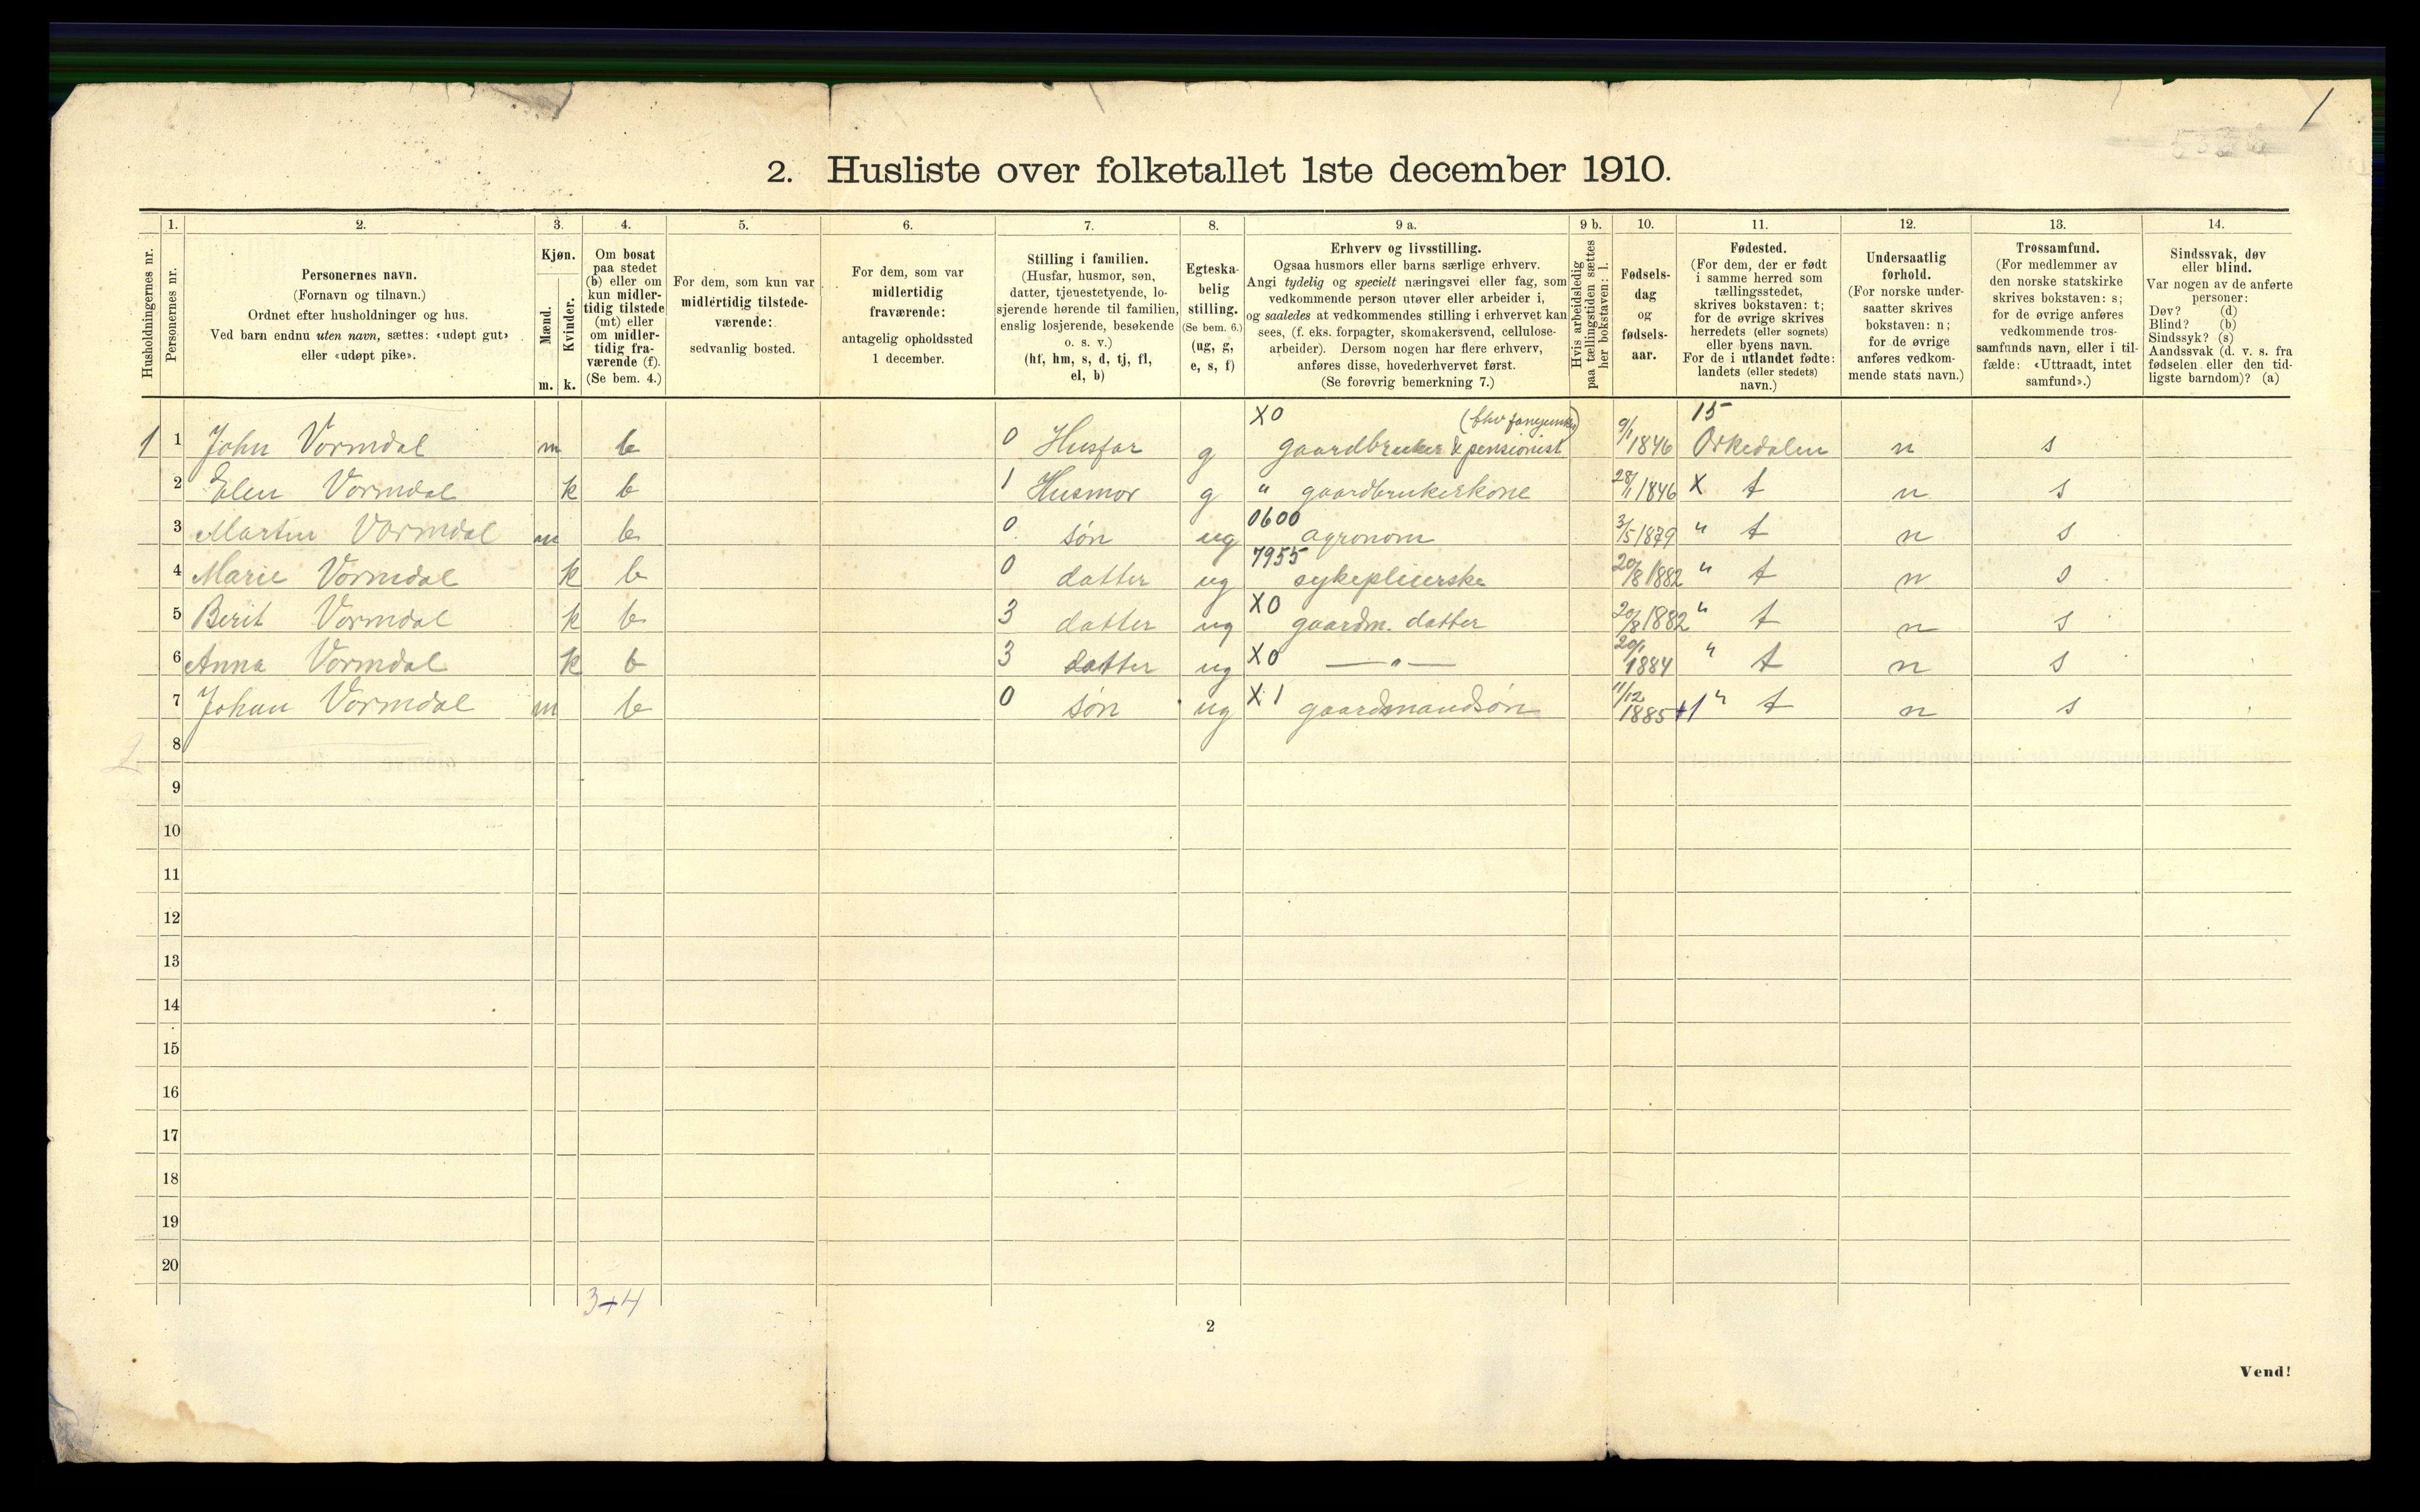 1
2. Husliste over folketallet 1ste december 1910.
1. 2. 3. 4. 5. 6. 7. 8. 9 a. 9 b. 10. 11. 12. 13. 14.
Husholdningernes nr.
Personernes nr.
Personernes navn.
(Fornavn og tilnavn.)
Ordnet efter husholdninger og hus.
Ved barn endnu uten navn, sættes: «udøpt gut»
eller «udøpt pike».
Kjøn.
Mænd.
m.
Kvinder.
k.
Om bosat
paa stedet
(b) eller om
kun midler-
tidig tilstede
(mt) eller
om midler-
tidig fra-
værende (f).
(Se bem. 4.)
For dem, som kun var
midlertidig tilstede-
værende:
sedvanlig bosted.
For dem, som var
midlertidig
fraværende:
antagelig opholdssted
1 december.
Stilling i familien.
(Husfar, husmor, søn,
datter, tjenestetyende, lo-
sjerende hørende til familien,
enslig losjerende, besøkende
o. s. v.)
(hf, hm, s, d, tj, fl,
el, b)
Egteska-
belig
stilling.
(Se bem. 6.)
(ug, g,
e, s, f)
Erhverv og livsstilling.
Ogsaa husmors eller barns særlige erhverv.
Angi tydelig og specielt næringsvei eller fag, som
vedkommende person utøver eller arbeider i,
og saaledes at vedkommendes stilling i erhvervet kan
sees, (f. eks. forpagter, skomakersvend, cellulose-
arbeider). Dersom nogen har flere erhverv,
anføres disse, hovederhvervet først.
(Se forøvrig bemerkning 7.)
Hvis arbeidsledig
paa tællingstiden sættes
her bokstaven: l.
Fødsels-
dag
og
fødsels-
aar.
Fødested.
(For dem, der er født
i samme herred som
tællingsstedet,
skrives bokstaven: t;
for de øvrige skrives
herredets (eller sognets)
eller byens navn.
For de i utlandet fødte:
landets (eller stedets)
navn.)
Undersaatlig
forhold.
(For norske under-
saatter skrives
bokstaven: n;
for de øvrige
anføres vedkom-
mende stats navn.)
Trossamfund.
(For medlemmer av
den norske statskirke
skrives bokstaven: s;
for de øvrige anføres
vedkommende tros-
samfunds navn, eller i til-
fælde: «Uttraadt, intet
samfund».)
Sindssvak, døv
eller blind.
Var nogen av de anførte
personer:
Døv? (d)
Blind? (b)
Sindssyk? (s)
Aandssvak (d. v. s. fra
fødselen eller den tid-
ligste barndom)? (a)
X0 15
1 1 John Vormdal m b 0 Husfar g gaardbruker & pensionist 9/1 1846 Orkedalen n s
2 Elen Vormdal k b 1 Husmor g " gaardbrukerkone 28/1 1846 X t n s
3 Martin Vormdal m b 0 søn ug 0600 agronom 3/5 1879 " t n s
4 Marie Vormdal k b 0 datter ug 7955 sykepleierske 20/8 1882 " t n s
5 Berit Vormdal k b 3 datter ug X0 gaardm. datter 20/8 1882 " t n s
6 Anna Vormdal k b 3 datter ug X0 —"— 20/1 1884 " t n s
7 Johan Vormdal m b 0 søn ug X1 gaardmandsøn 11/12 1885 +1 " t n s
8
9
10
11
12
13
14
15
16
17
18
19
20
3+4
2
Vend!